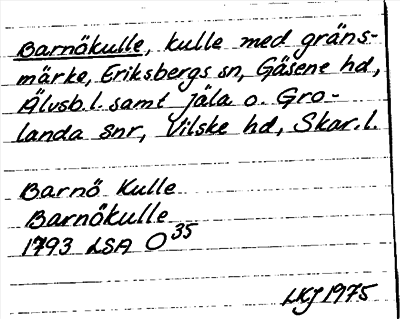 Barnökulle, kulle med gräns-
märke, Eriksbergs sn, Gäsene hd,
Älvsb.l. samt Jäla o. Gro-
landa snr, Vilske hd, Skar.l.
Barnö Kulle
Barnökulle
1793 LSA O35
LKJ 1975